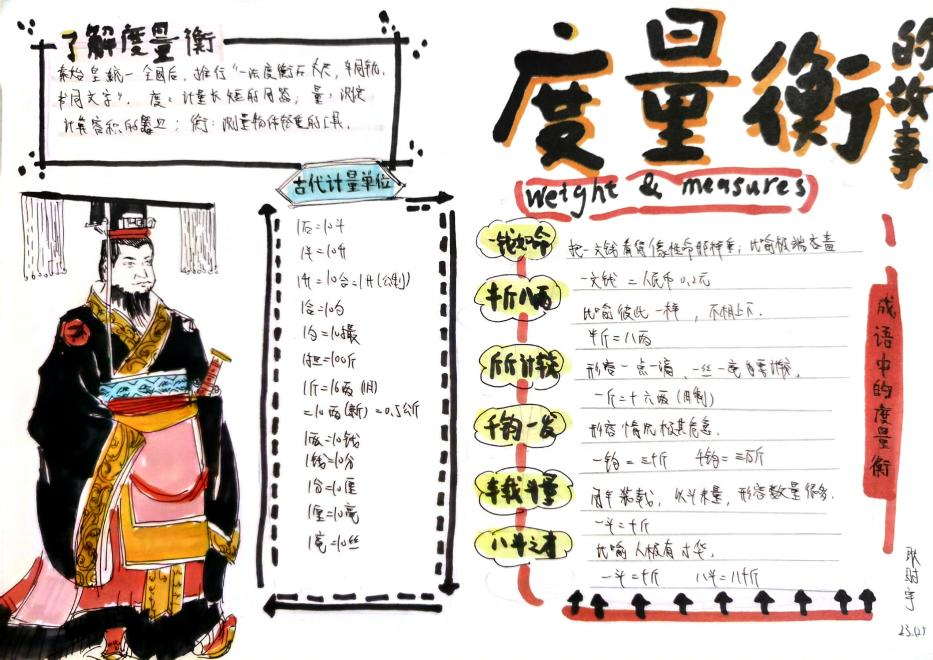 了解度量衡
秦始皇统一全国后，推行"一法度衡石丈尺，车同轨，
书同文字"。度：计量长短的用器；量：测定
计算容积的器皿；衡：测量物体轻重的工具.
古代计量单位
1石=10斗
1斗=10升
1升=10合=1升(公制)
1合=10勺
1勺=10撮
1担=100斤
1斤=16两(旧)
=10两(新)=0.5公斤
1两=10钱
1钱=10分
1分=10厘
1厘=10毫
1毫=10丝
度量衡的故事
weight & measures
一钱如命
把一文钱看得像性命那样重，比喻极端吝啬
一文钱=人民币0.2元
半斤八两
比喻彼此一样，不相上下.
半斤=八两
斤斤计较
形容一点一滴，一丝一毫都要计较.
一斤=十六两(旧制)
千钧一发
形容情况极其危急.
一钧=三十斤 千钧=三万斤
车载斗量
用车装载，以斗来量，形容数量很多.
一斗=十斤
八斗之才
比喻人极有才华.
一斗=十斤 八斗=八十斤
成语中的度量衡